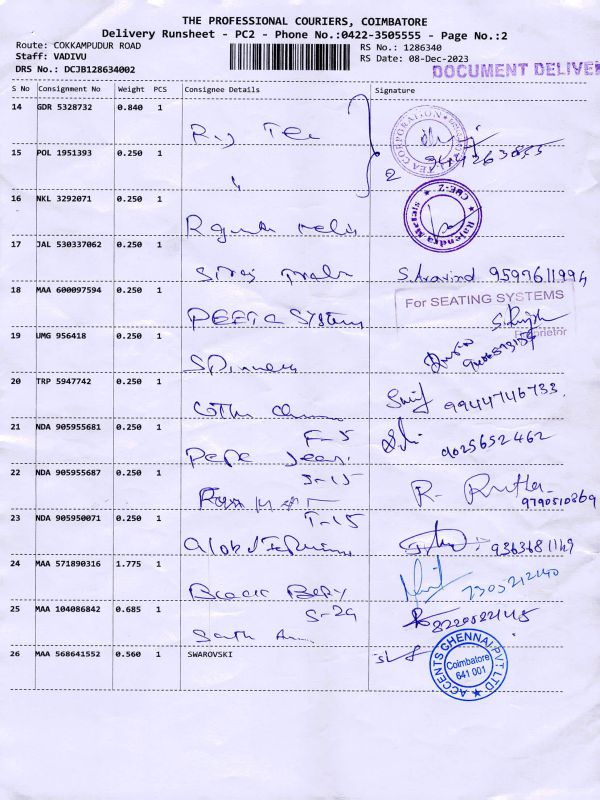 THE PROFESSIONAL COURIERS, COIMBATORE
Delivery Runsheet - PC2 - Phone No.:0422-3505555 - Page No.:2
Route: COKKAMPUDUR ROAD
Staff: VADIVU
DRS No.: DCJB128634002
RS No.: 1286340
RS Date: 08-Dec-2023
DOCUMENT DELIVE
S No Consignment No Weight PCS Consignee Details Signature
14 GDR 5328732 0.840 1
15 POL 1951393 0.250 1
2
16 NKL 3292071 0.250 1
Rajendra Metals
17 JAL 530337062 0.250 1
S.Aravind 9597611994
18 MAA 600097594 0.250 1
For SEATING SYSTEMS
Systems
Proprietor
19 UMG 956418 0.250 1
Spinners
20 TRP 5947742 0.250 1
9944746733
21 NDA 905955681 0.250 1
F-5
9025652462
Pepe Jeans
22 NDA 905955687 0.250 1
J-15
R-
9790510869
23 NDA 905950071 0.250 1
T-15
9363681149
24 MAA 571890316 1.775 1
7305212140
25 MAA 104086842 0.685 1
S-29
8220522145
26 MAA 568641552 0.560 1 SWAROVSKI
ACCENTS CHENNAI PVT. LTD
Coimbatore
641 001